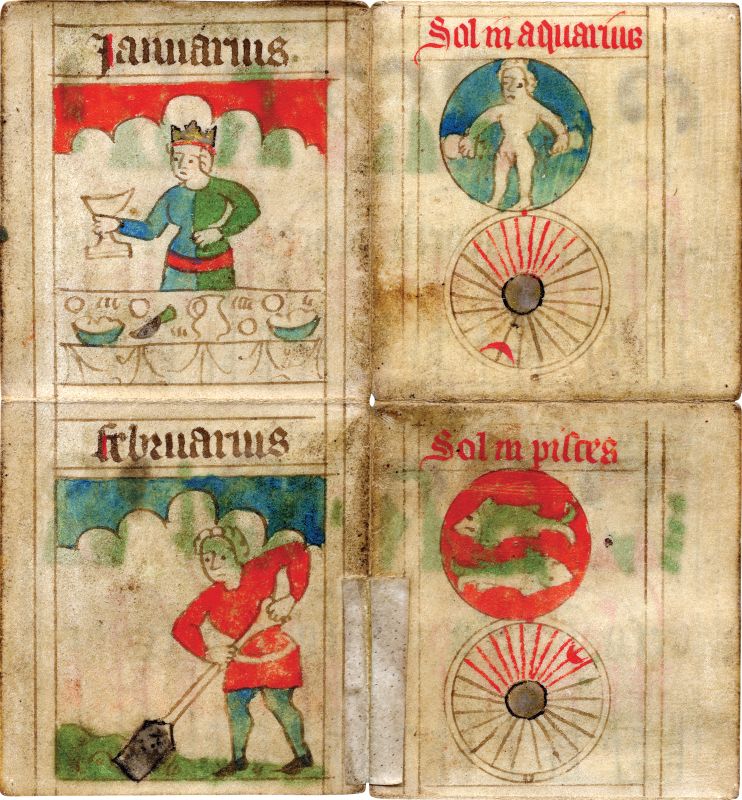 Januarius.
Sol in aquarius
februarius
Sol in pisces